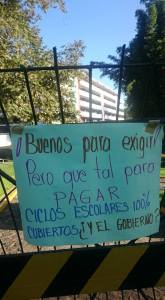 ¡Buenos para exigir!
Pero que tal para
PAGAR
CICLOS ESCOLARES 100%
CUBIERTOS ¿Y EL GOBIERNO?